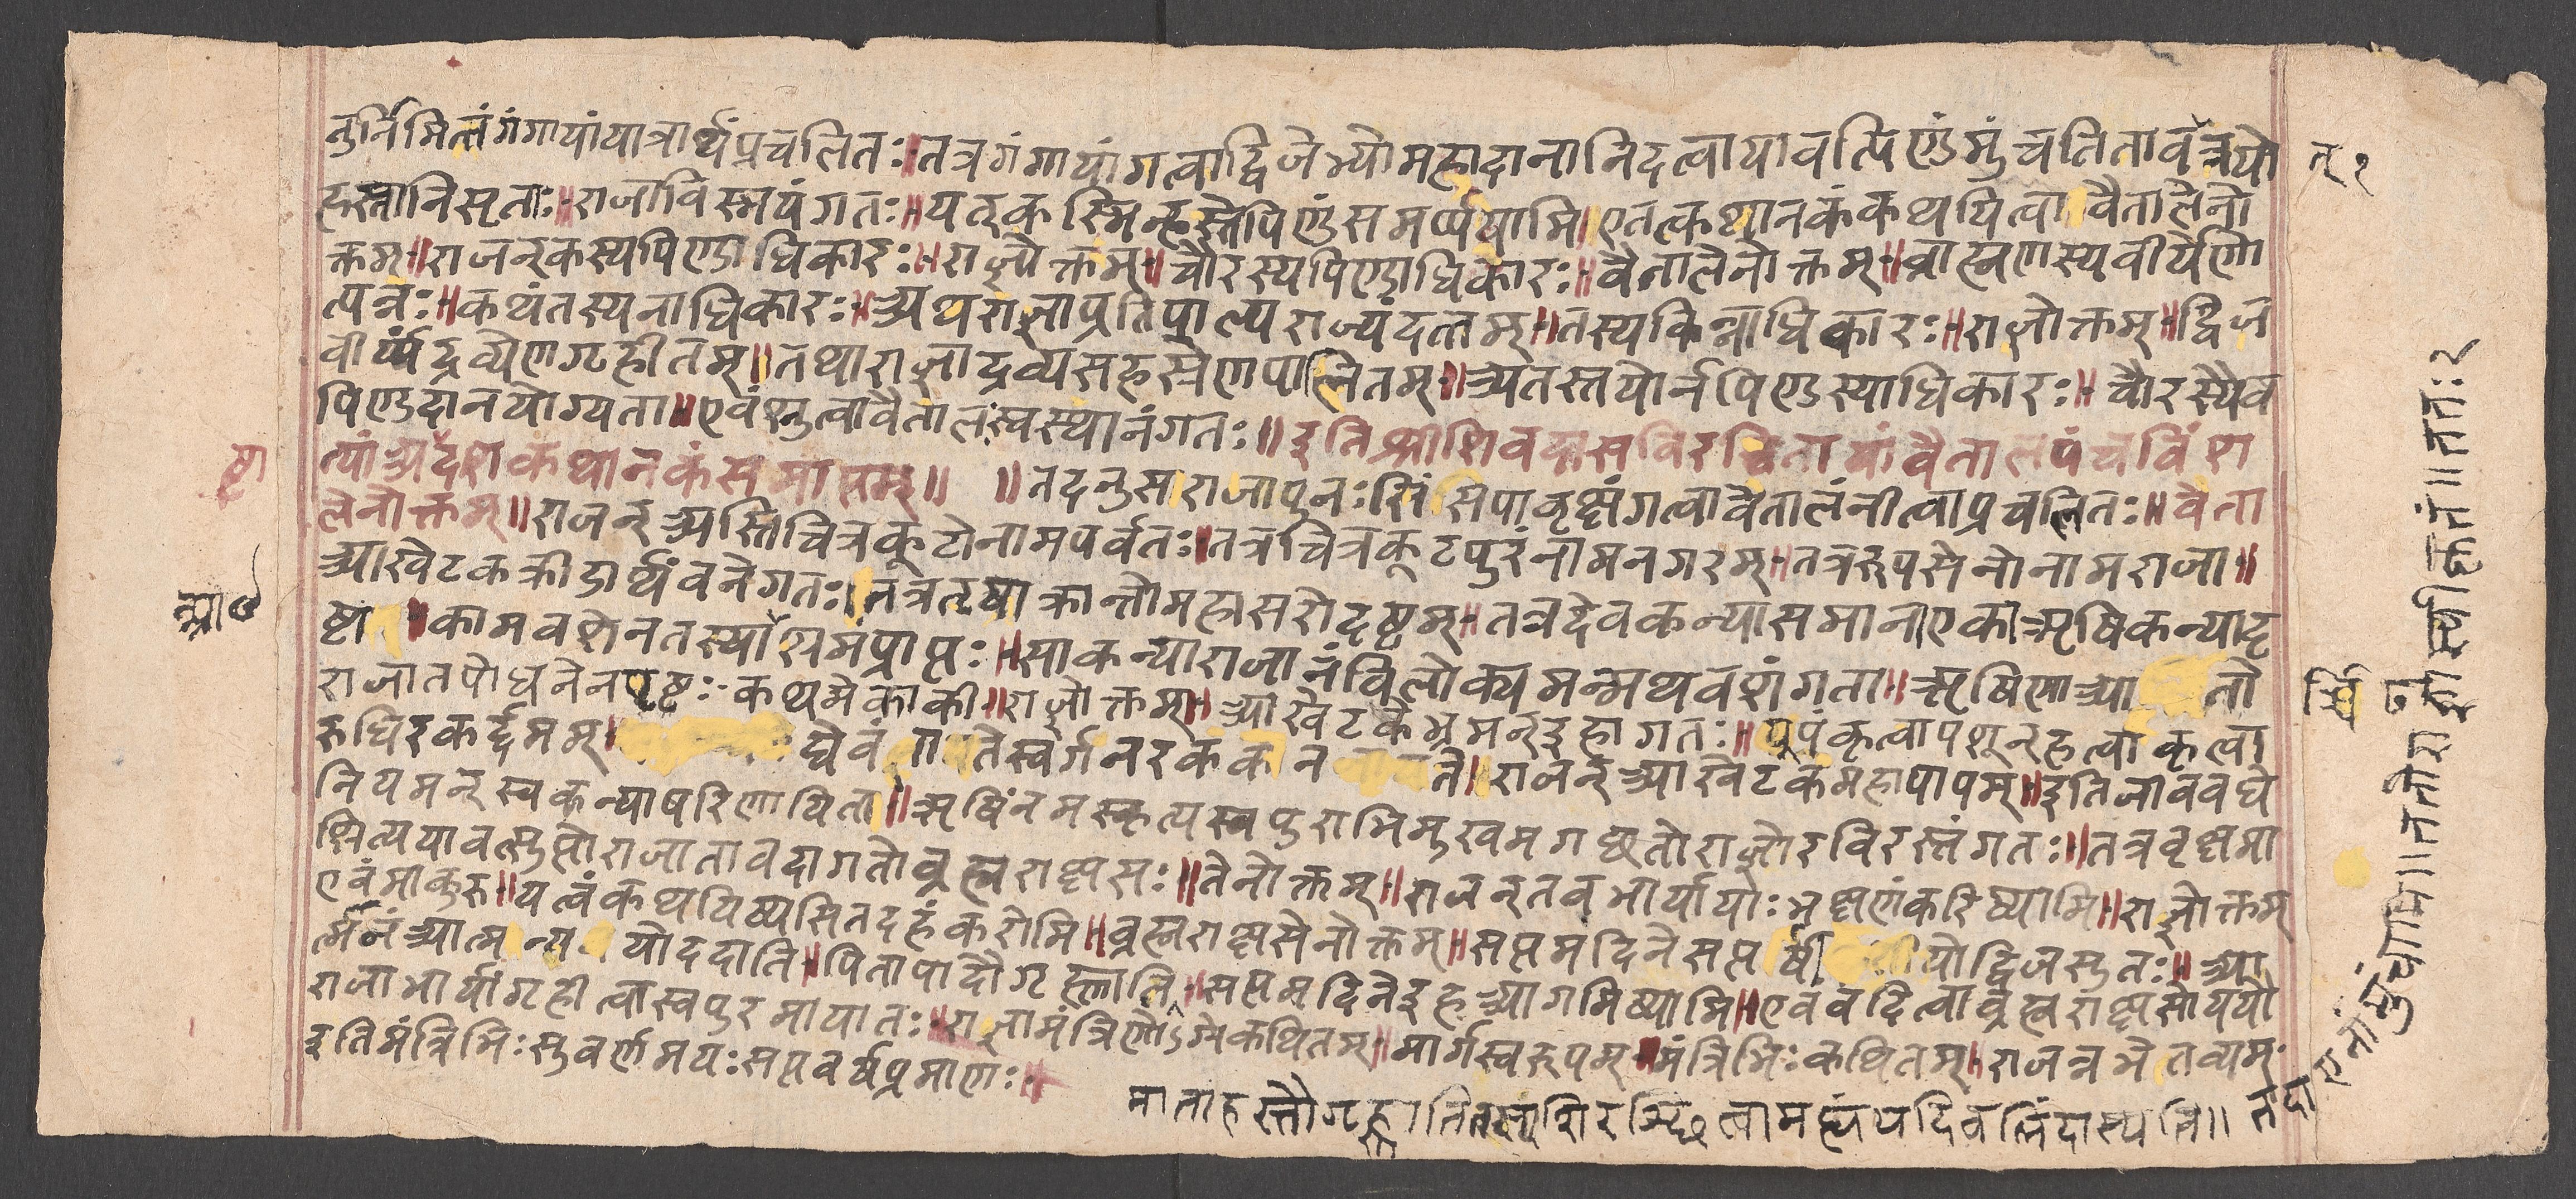 तुर्निमित्तंगंगायांयात्रार्थंप्रचलितः॥तत्रगंगायांगत्वाद्विजेभ्योमहादानानिदत्वायावत्पिण्डंमुंचतितावत्त्रयो
हस्तानिसृताः॥राजाविस्मयंगतः॥यत्कस्मिन्हस्तेपिण्डंसमर्प्पयामि॥एतत्कथानकंकथयित्वावैतालेनो
क्तम्॥राजन्कस्यपिण्डाधिकारः॥राज्ञोक्तम्॥चौरस्यपिण्डाधिकारः॥वैतालेनोक्तम्॥ब्राह्मणस्यवीर्येणो
त्पन्नः॥कथंतस्यनाधिकारः॥अथराज्ञाप्रतिपाल्यराज्यंदत्तम्॥तस्यकिन्नाधिकारः॥राज्ञोक्तम्॥द्विज
वीर्य्यंद्रव्येणगृहीतम्॥तथाराज्ञाद्रव्यसहस्रेणपालितम्॥अतस्तयोर्नपिण्डस्याधिकारः॥चौरस्यैव
पिण्डदानयोग्यता॥एवंश्रुत्वावैतालंस्वस्थानंगतः॥इतिश्रीशिवदासविरचितायांवैतालपंचविंश
त्यांअदशकथानकंसमाप्तम्॥ ॥तदनुसाराजापुनःसिंसिपावृक्षंगत्वावैतालंनीत्वाप्रचलितः॥वैता
लेनोक्तम्॥राजन्अस्तिचित्रकूटोनामपर्वतः॥तत्रचित्रकूटपुरंनामनगरम्॥तत्ररूपसेनोनामराजा॥
आखेटकक्रीडार्थंवनेगतः॥तत्रतृषाक्रान्तोमहासरोदृष्टम्॥तत्रदेवकन्यासमानाएकाऋषिकन्यादृ
ष्टा॥कामवशेनतस्याश्रमंप्राप्तः॥साकन्याराजानंविलोक्यमन्मथवशंगता॥ऋषिणाआ तो
राजातपोधनेनपृष्टः॥कथमेकाकी॥राज्ञोक्तम्॥आखेटकेभ्रमन्इहागतः॥यूपंकृत्वापशून्हत्वाकृत्वा
रुधिरकर्द्दमम्॥ द्येवं तेस्वर्गनरकंकेन ते॥राजन्आखेटकंमहापापम्॥इतिजीववधे
नियमन्स्वकन्यापरिणायिता॥ऋषिंनमस्कृत्यस्वपुराभिमुखमगछतोराज्ञोरविरस्तंगतः॥तत्रवृक्षमा
श्रित्ययावत्सुप्तोराजातावदागतोब्रह्मराक्षसः॥तेनोक्तम्॥राजन्तवभार्यायाःभक्षणंकरिष्यामि॥राज्ञोक्तम्
एवंमाकुरु॥यत्वंकथयिष्यसितदहंकरोमि॥ब्रह्मराक्षसेनोक्तम्॥सप्तमदिनेसप्त र्षी योद्विजसुतः॥आ
र्मनंआत्म योददाति॥पितापादौगृह्णाति॥सप्तमदिनेइहआगमिष्यामि॥एवंवदित्वाब्रह्मराक्षसोययौ
राजाभार्यांगृहीत्वास्वपुरमायातः॥राज्ञामंत्रिणोऽग्रेकथितम्॥मार्गस्वरूपम्॥मंत्रिभिःकथितम्॥राजन्नभेतव्यम्
इतिमंत्रिभिःसुवर्णमयःसप्तवर्षप्रमाणः॥
माताहस्तौगृह्णातितस्यशिरश्छित्वामह्यंयदिबलिंदास्यति॥ तदा
एनांमुंचामि॥ततोराज्ञास्वीकृतं॥ततः२
त्२
ष्टा